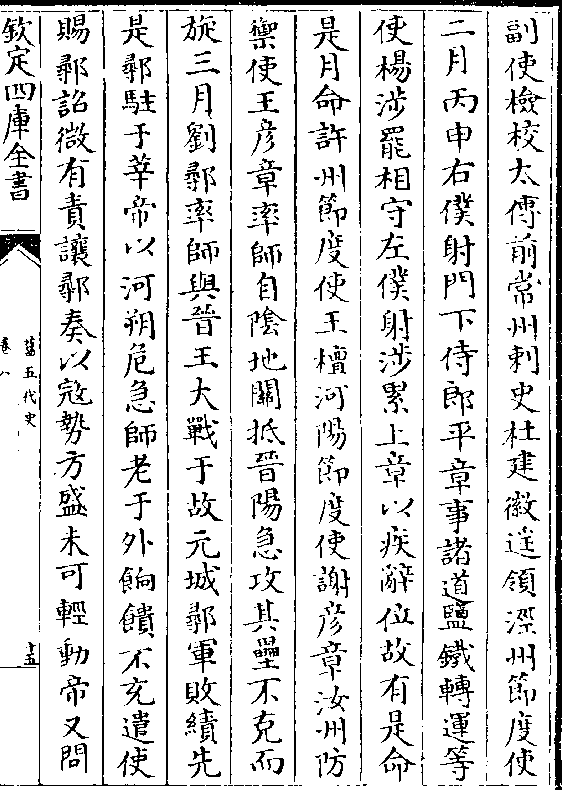 副使檢校太傅前常州刺史杜建徽遥領涇州節度使
二月丙申右僕射門下侍郎平章事諸道鹽鐵轉運等
使楊涉罷相守左僕射涉累上章以疾辭位故有是命
是月命許州節度使王檀河陽節度使謝彦章汝州防
禦使王彦章率師自陰地關抵晉陽急攻其壘不克而
旋三月劉鄩率師與晉王大戰于故元城鄩軍敗績先
是鄩駐于莘帝以河朔危急師老于外餉饋不充遣使
賜鄩詔微有責讓鄩奏以冦勢方盛未可輕動帝又問
欽定四庫全書
舊五代史
卷八
十五